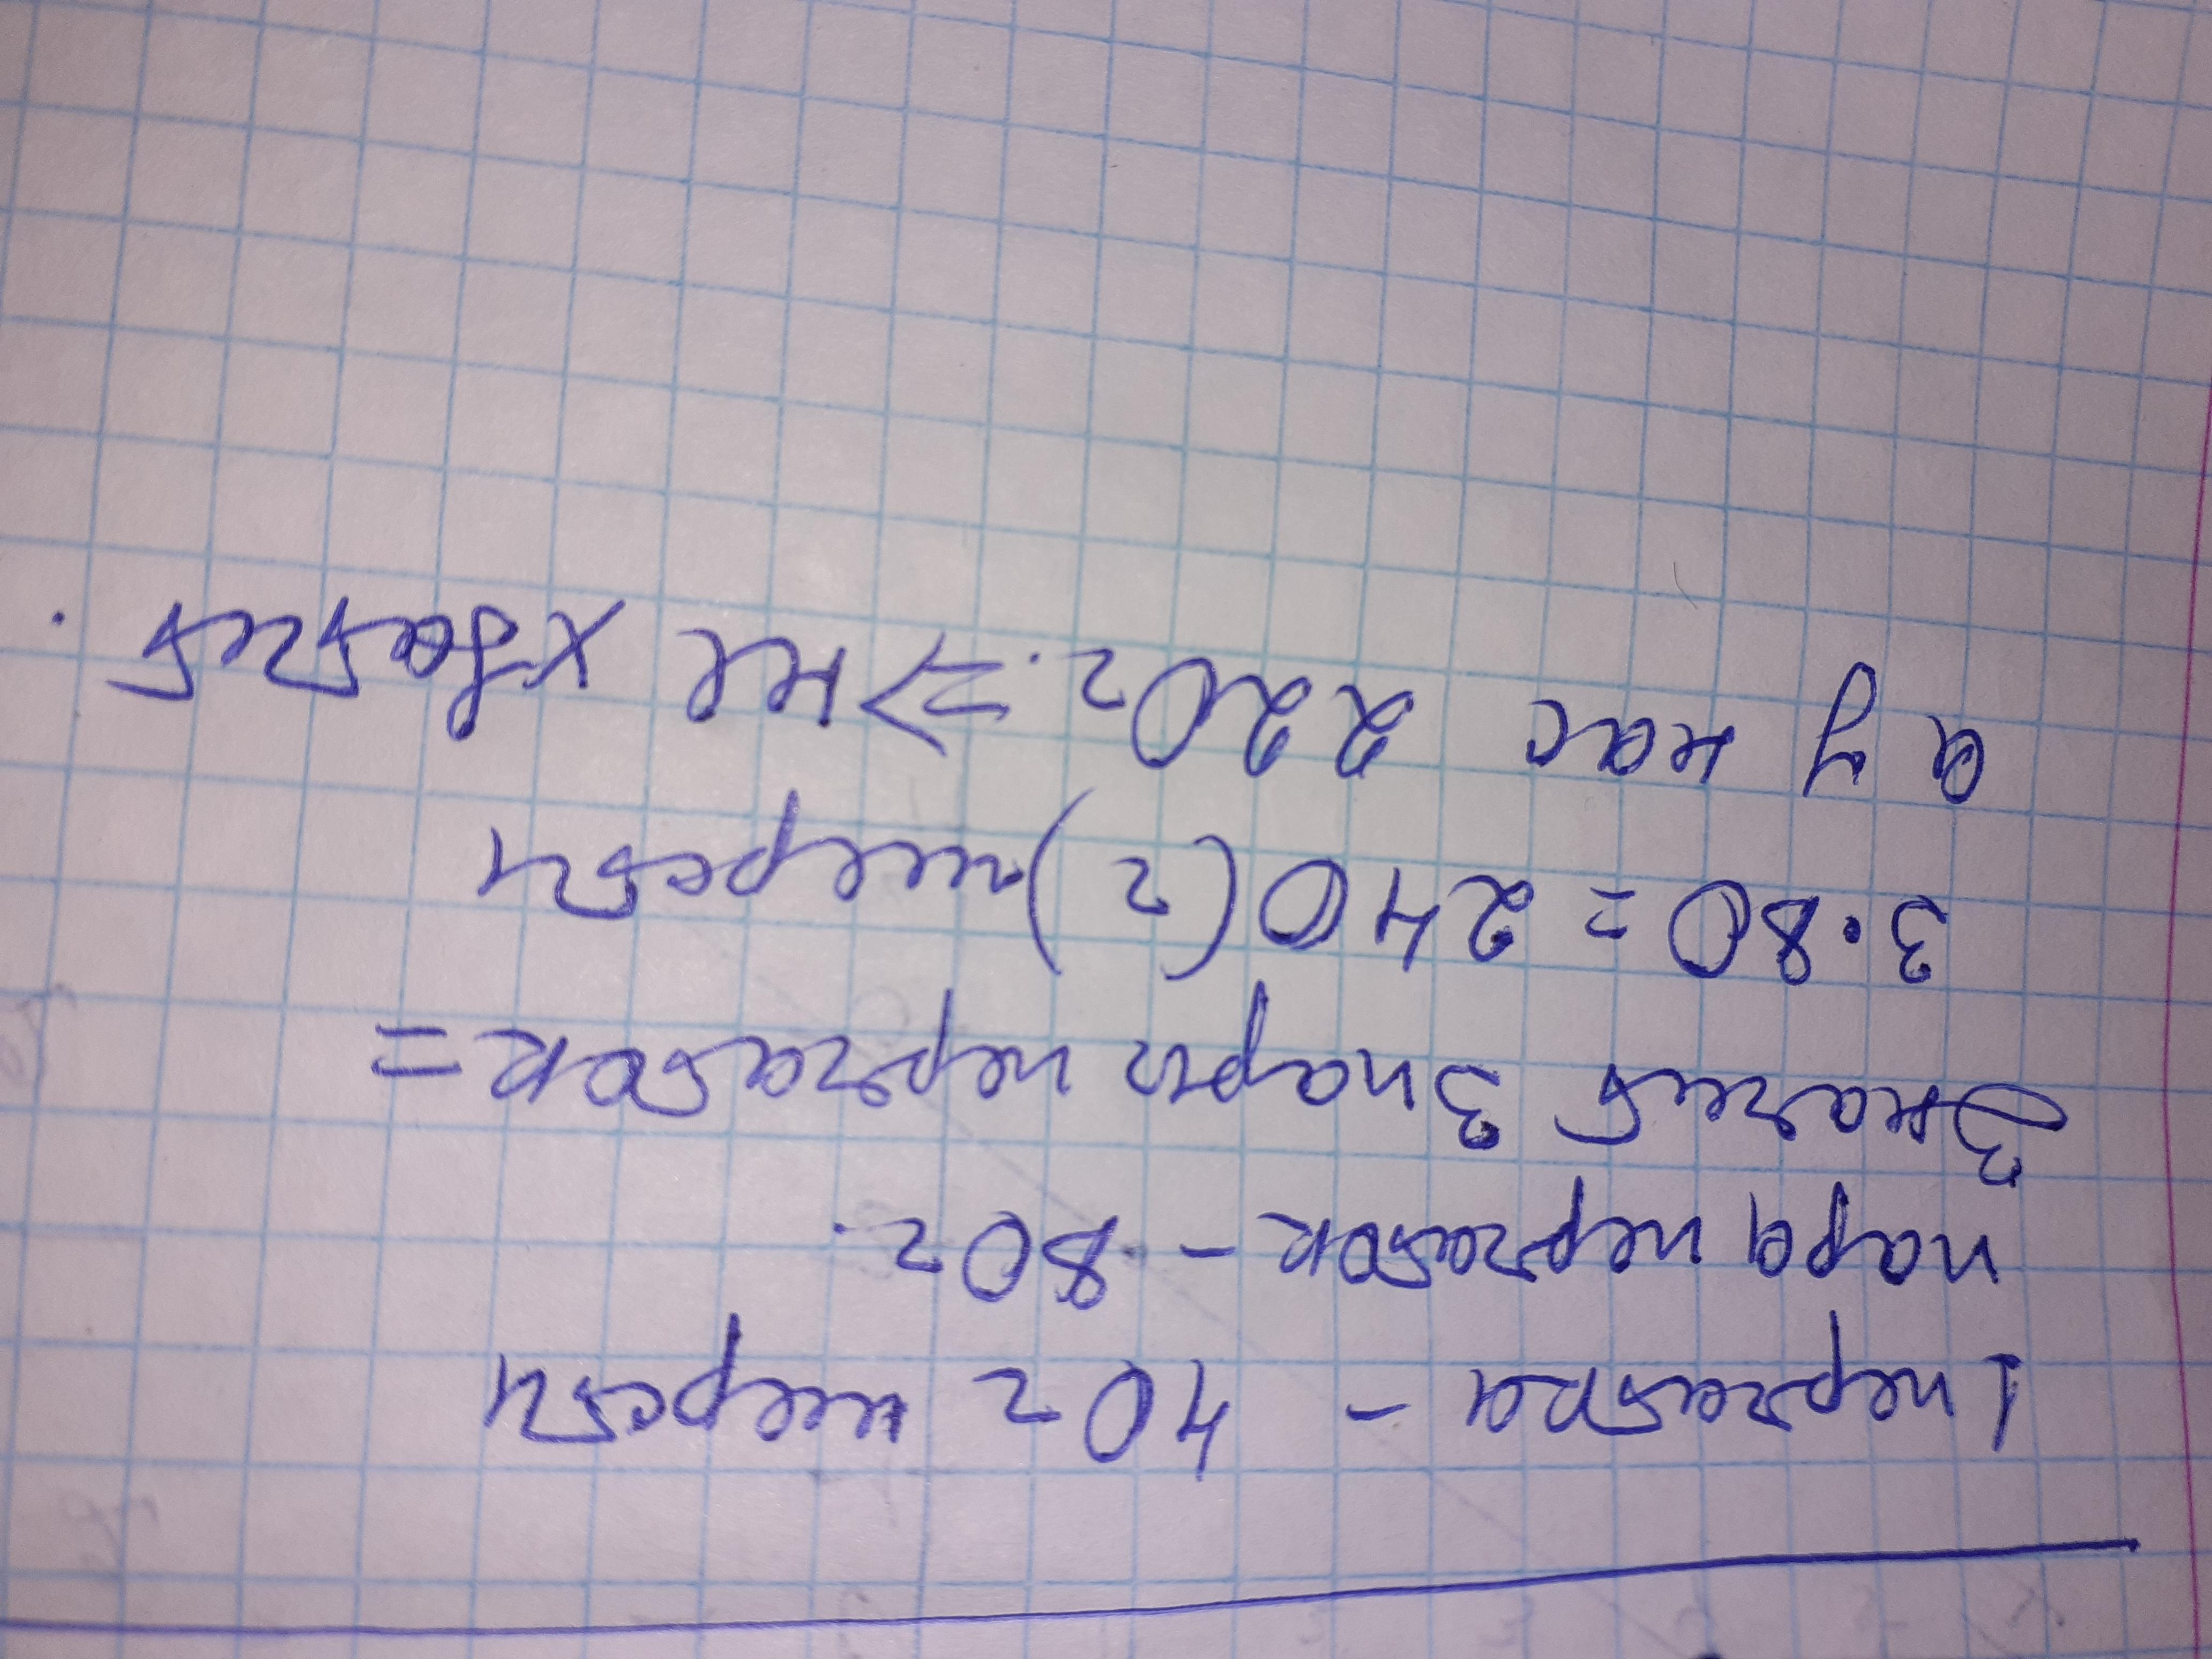 1 перчатка - 40г шерсти
пара перчаток - 80г.
Значит 3 пары перчаток =
3·80=240(г) шерсти
а у нас 220г. => не хватит.